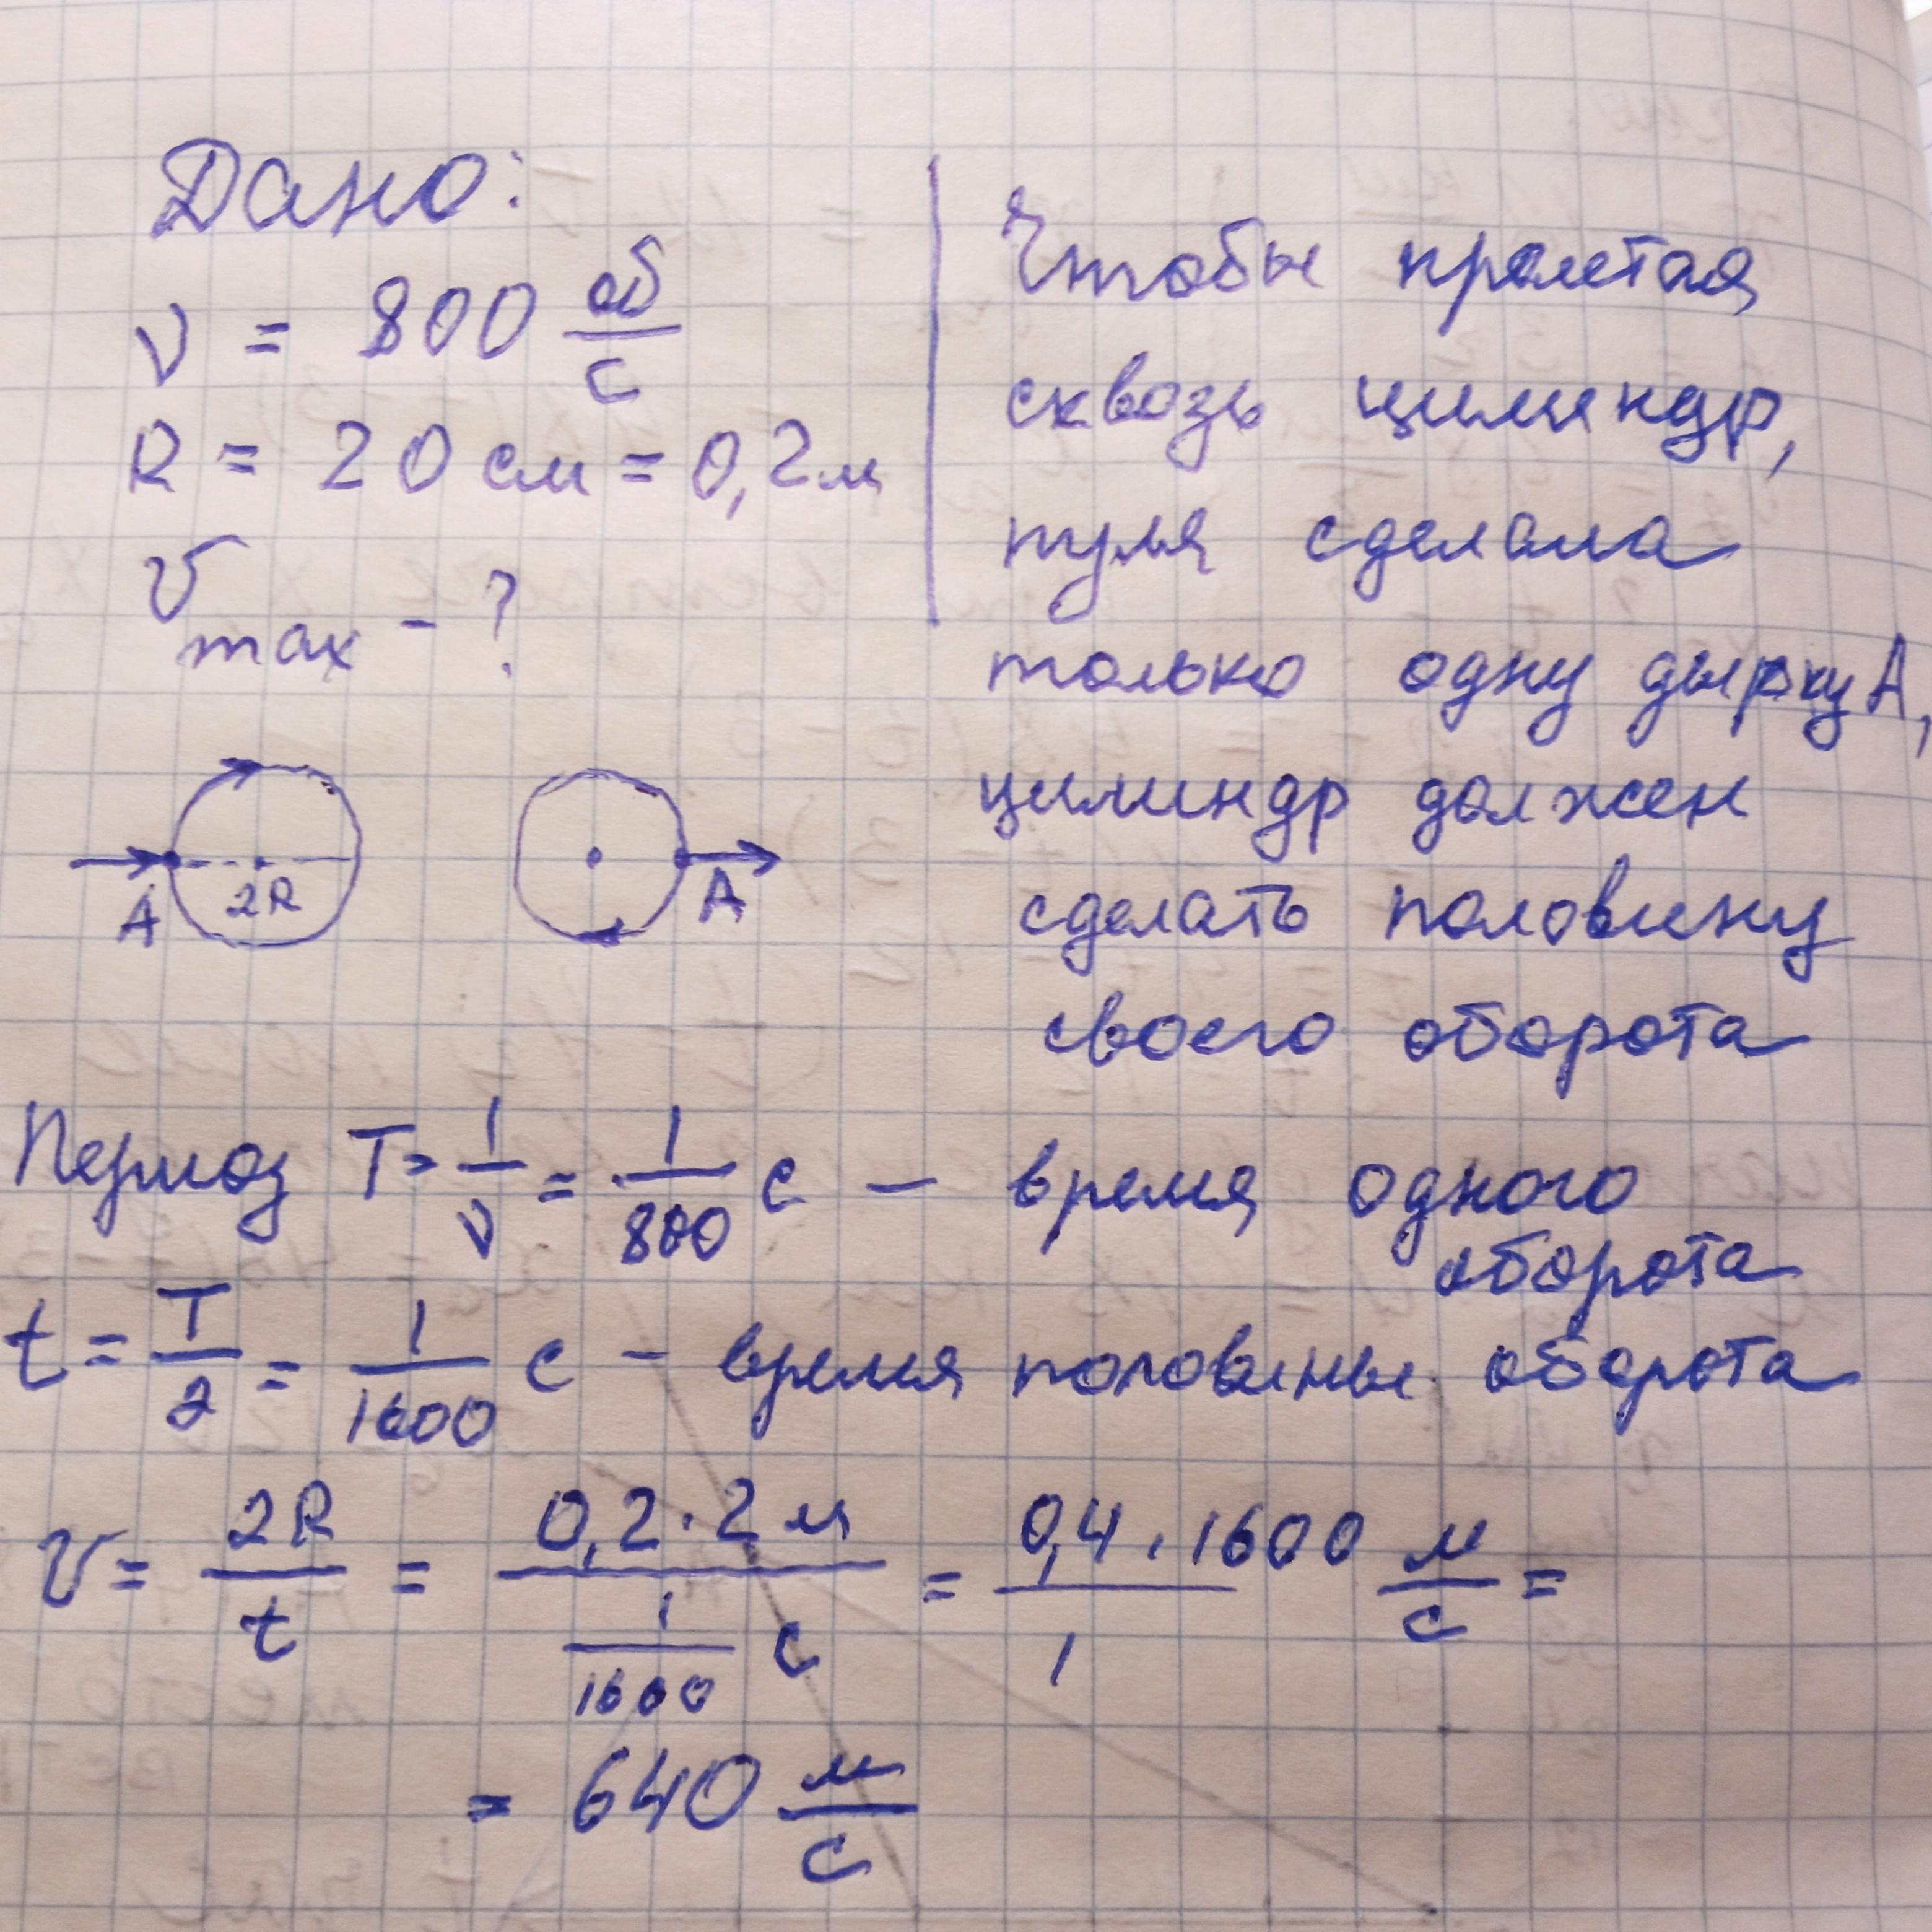 Дано:
ν = 800 об/с
R = 20 см = 0,2 м
υ max - ?
Чтобы пролетая
сквозь цилиндр,
пуля сделала
только одну дырку А,
цилиндр должен
сделать половину
своего оборота
A 2R A
Период T = 1/ν = 1/800 с – время одного
оборота
t = T/2 = 1/1600 с – время половины оборота
υ = 2R/t = 0,2 · 2 м / 1/1600 с = 0,4 · 1600/1 м/с =
= 640 м/с